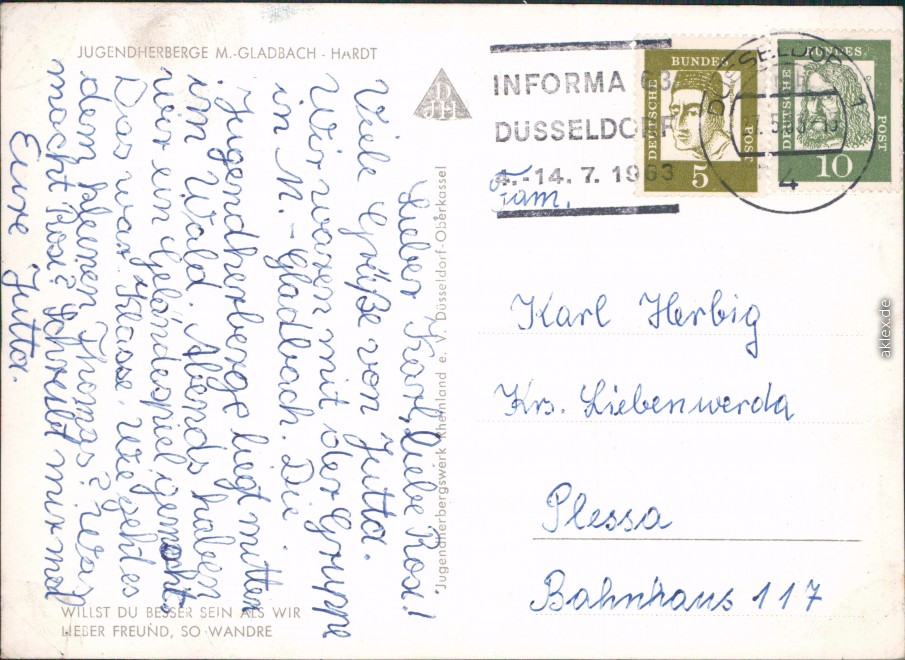 JUGENDHERBERGE M.-GLADBACH - HARDT
Lieber Karl, liebe Rosi!
Viele Grüße von Jutta.
Wir waren mit der Gruppe
in M.-Gladbach. Die
Jugendherberge liegt mitten
im Wald. Abends haben
wir ein Geländespiel gemacht.
Das war Klasse. Wie geht es
dem kleinen Thomas? Was
macht Rosi? Schreibt mir mal
Eure Jutta.
WILLST DU BESSER SEIN ALS WIR
LIEBER FREUND, SO WANDRE
DJH
"Jugendherbergswerk Rheinland e. V. Düsseldorf-Oberkassel
INFORMA 63
DÜSSELDORF
4.-14. 7. 1963
DÜSSELDORF 1
4
DEUTSCHE BUNDESPOST
5
DEUTSCHE BUNDESPOST
10
Fam.
Karl Herbig
Krs. Liebenwerda
Plessa
Bahnhaus 117
aklex.de